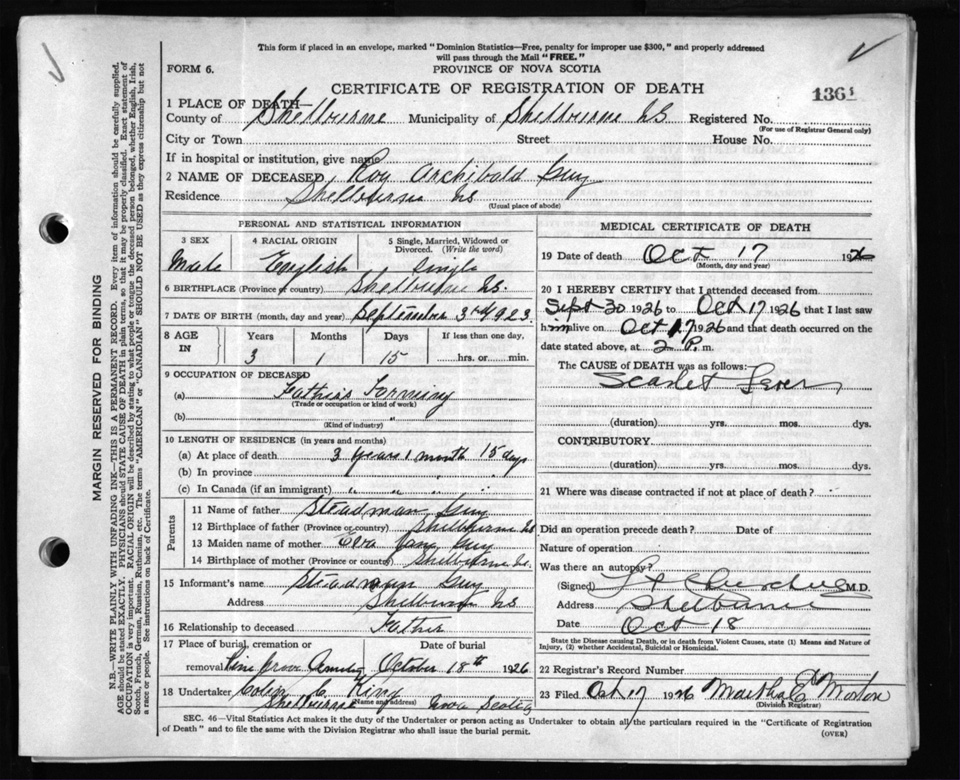 This form if placed in an envelope, marked "Dominion Statistics—Free, penalty for improper use $300," and properly addressed
will pass through the Mail "FREE."
FORM 6.
PROVINCE OF NOVA SCOTIA
CERTIFICATE OF REGISTRATION OF DEATH
1361
1 PLACE OF DEATH—
County of Shelburne Municipality of Shelburne NS Registered No.
(For use of Registrar General only)
City or Town Street House No.
If in hospital or institution, give name
2 NAME OF DECEASED Roy Archibald Guy
Residence Shelburne NS
(Usual place of abode)
PERSONAL AND STATISTICAL INFORMATION
3 SEX 4 RACIAL ORIGIN 5 Single, Married, Widowed or
Divorced. (Write the word)
Male English Single
6 BIRTHPLACE (Province or country) Shelburne NS.
7 DATE OF BIRTH (month, day and year) September 3rd 1923.
8 AGE
IN
Years Months Days If less than one day,
3 1 15 hrs. or min.
9 OCCUPATION OF DECEASED
(a) Farming
(Trade or occupation or kind of work)
(b) "
(Kind of industry)
10 LENGTH OF RESIDENCE (in years and months)
(a) At place of death 3 years 1 month 15 days
(b) In province " " " "
(c) In Canada (if an immigrant) " " " "
Parents
11 Name of father Steadman Guy
12 Birthplace of father (Province or country) Shelburne NS
13 Maiden name of mother Guy
14 Birthplace of mother (Province or country) Shelburne NS.
15 Informant's name Steadman Guy
Address Shelburne NS
16 Relationship to deceased Father
17 Place of burial, cremation or Date of burial
removal Pine Grove October 18th 1926
18 Undertaker Colin C. King
(Name and address)
Shelburne Nova Scotia
MEDICAL CERTIFICATE OF DEATH
19 Date of death Oct 17 1926
(Month, day and year)
20 I HEREBY CERTIFY that I attended deceased from
Sept 30 1926 to Oct 17 1926 that I last saw
him alive on Oct 17 1926 and that death occurred on the
date stated above, at 2 P. m.
The CAUSE of DEATH was as follows:
Scarlet Fever
(duration) yrs. mos. dys.
CONTRIBUTORY
(duration) yrs. mos. dys.
21 Where was disease contracted if not at place of death?
Did an operation precede death? Date of
Nature of operation
Was there an autopsy?
(Signed) M.D.
Address Shelburne
Date Oct 18
State the Disease causing Death, or in death from Violent Causes, state (1) Means and Nature of
Injury, (2) whether Accidental, Suicidal or Homicidal.
22 Registrar's Record Number
23 Filed Oct 17 1926 Martha E Morton
(Division Registrar)
SEC. 46—Vital Statistics Act makes it the duty of the Undertaker or person acting as Undertaker to obtain all the particulars required in the "Certificate of Registration
of Death" and to file the same with the Division Registrar who shall issue the burial permit.
(OVER)
MARGIN RESERVED FOR BINDING
N.B.—WRITE PLAINLY WITH UNFADING INK—THIS IS A PERMANENT RECORD. Every item of information should be carefully supplied.
AGE should be stated EXACTLY. PHYSICIANS should STATE CAUSE OF DEATH in plain terms, so that it may be properly classified. Exact statement of
OCCUPATION is very important. RACIAL ORIGIN will be described by stating to what people or tongue the deceased person belonged, whether English, Irish,
Scotch, French, German, Russian, Ruthenian, etc. The terms "AMERICAN" or "CANADIAN" SHOULD NOT BE USED as they express citizenship but not
a race or people. See instructions on back of Certificate.